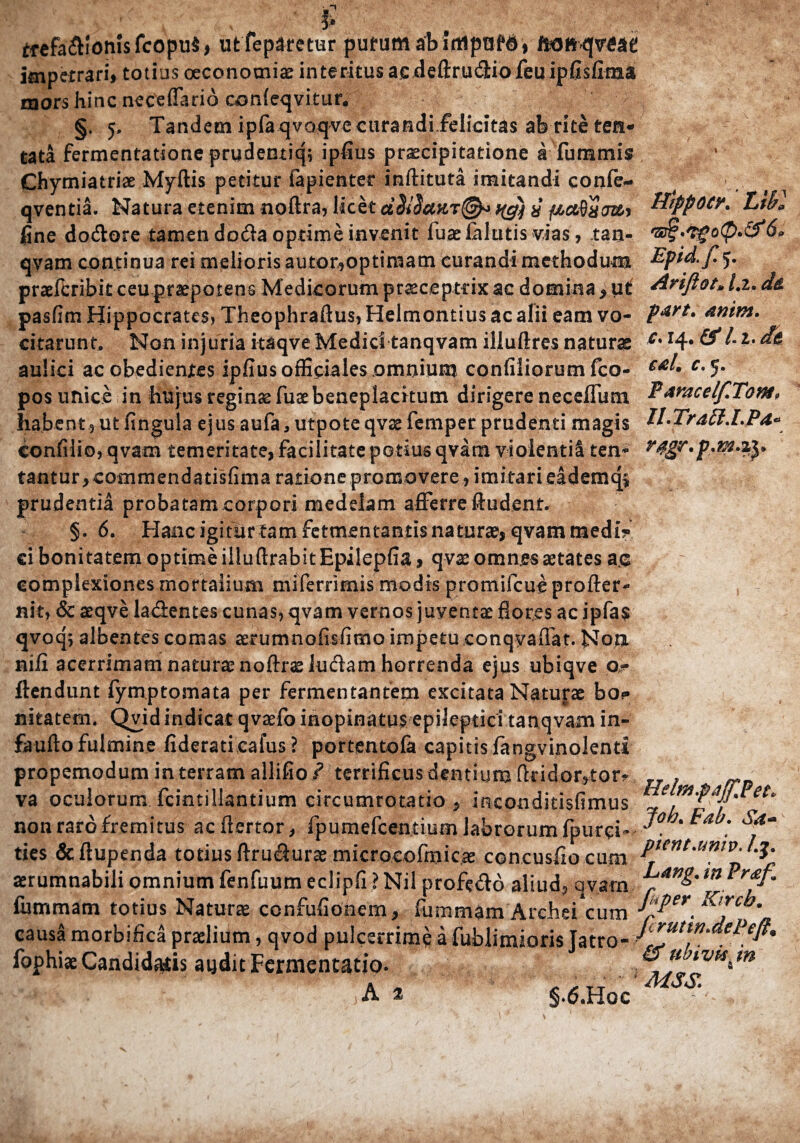 trefactionis scopus, ut separetur purum ab impuro, non qveat
impetrari, totius œconomiæ interitus ac destructio seu ipsissima
mors hinc necessariò conseqvitur.
§. 5. Tandem ipsa qvoqve curandi felicitas ab ritè ten-
tatâ fermentatione prudentiq; ipsius præcipitatione à summis
Chymiatriæ Mystis petitur sapienter institutâ imitandi conse-
qventiâ. Natura etenim nostra, licèt ἀδίδακτ@ καὶ ȣ μαθȣσα,
sine doctore tamen docta optimè invenit suæ salutis vias, tan-
qvam continua rei melioris autor, optimam curandi methodum
præscribit ceu præpotens Medicorum præceptrix ac domina, ut
passim Hippocrates, Theophrastus, Helmontius ac alii eam vo-
citarunt. Non injuria itaqve Medici tanqvam illustres naturæ
aulici ac obedientes ipsius officiales omnium consiliorum sco-
pos unicè in hujus reginæ suæ beneplacitum dirigere necessum
habent, ut singula ejus ausa, utpote qvæ semper prudenti magis
consilio, qvam temeritate, facilitate potius qvàm violentiâ ten-
tantur, commendatissima ratione promovere, imitari eâdemq;
prudentiâ probatam corpori medelam afferre student.
§. 6. Hanc igitur tam fetmentantis naturæ, qvam medi-
ci bonitatem optimè illustrabit Epilepsia, qvæ omnes ætates ac
complexiones mortalium miserrimis modis promiscuè proster-
nit, & æqvè lactentes cunas, qvam vernos juventæ flores ac ipsas
qvoq; albentes comas ærumnosissimo impetu conqvassat. Non
nisi acerrimam naturæ nostræ luctam horrenda ejus ubiqve o-
stendunt symptomata per fermentantem excitata Naturæ bo-
nitatem. Qvid indicat qvæso inopinatus epileptici tanqvam in-
fausto fulmine siderati casus? portentosa capitis sangvinolenti
propemodum in terram allisio? terrificus dentium stridor, tor-
va oculorum scintillantium circumrotatio, inconditissimus
non rarò fremitus ac stertor, spumescentium labrorum spurci-
ties & stupenda totius structuræ microcosmicæ concussio cum
ærumnabili omnium sensuum eclipsi? Nil profectò aliud, qvam
summam totius Naturæ confusionem, summam Archei cum
causâ morbificâ prælium, qvod pulcerrimè à sublimioris Jatro-
sophiæ Candidatis audit Fermentatio.
A 2 §.6.Hoc
Hippocr. Lib.
Epid. s. 5.
Aristot. l.2. de
part. anim.
c. 14. & l. 2. de
cal. c. 5.
Paracels. Tom.
II. Tract. I. Pa-
ragr. p. m. 23.
Helm. pass. Pet.
Joh. Fab. Sa-
pient. univ. l.3.
Lang. in Præf.
super Kirch.
scrutin. de Pest.
& ubivis in
MSS.